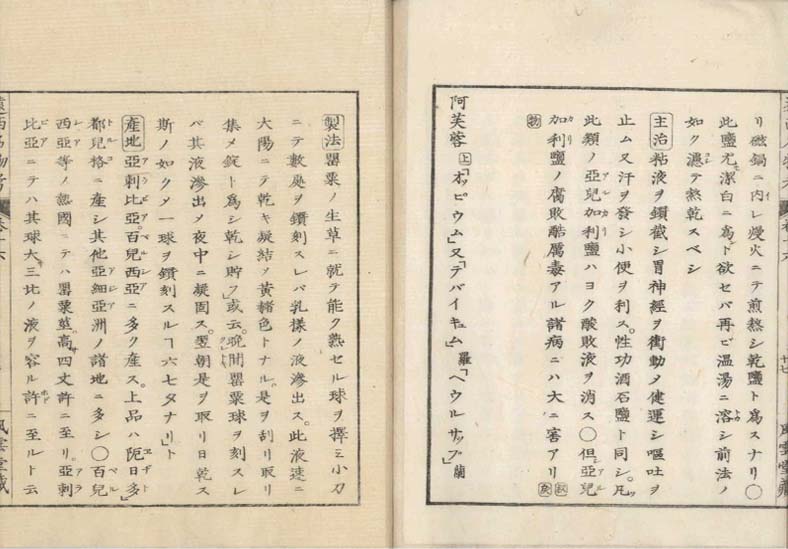 リ磁鍋ニ内レ熳火ニテ煎熬シ乾鹽ト爲スナリ〇
此鹽尤潔白ニ爲ト欲セバ再ビ温湯ニ溶シ前法ノ
如ク濃テ熬乾スベシ
主治 粘液ヲ鎖截シ胃神經ヲ衝動メ健運シ嘔吐ヲ
止ム又汗ヲ發シ小便ヲ利ス。性功酒石鹽ト同シ。凡ソ
此類ノ亞兒加利鹽ハヨク酸敗液ヲ消ス〇但亞兒
加利鹽ノ腐敗酷厲毒アル諸病ニハ大ニ害アリ
阿芙蓉 上「オッピウム」又「テバイキュム」羅「ヘウルサップ」蘭
十七
風雲堂藏
製法 罌粟ノ生草ニ就テ能ク熟セル球ヲ擇ミ小刀
ニテ數處ヲ鑽刻スレバ乳樣ノ液滲出ス。此液速ニ
大陽ニテ乾キ凝結ノ黄赭色トナル。是ヲ刮リ取リ
集メ錠ト爲シ乾シ貯フ」或云。晩間罌粟球ヲ刻スレ
バ其液滲出メ夜中ニ凝固ス。翌朝是ヲ取リ日乾ス
斯ノ如クメ一球ヲ鑽刻スル「六七タナリ」ト
產地 亞剌比亞。百兒西亞ニ多ク産ス。上品ハ阨日多」
都兒格ニ產シ其他亞細亞洲ノ諸地ニ多シ〇百兒
西亞等ノ熱國ニテハ罌粟莖。高四丈許ニ至リ。亞剌
比亞ニテハ其球大三比ノ液ヲ容ル許ニ至ルト云
遠西名物考
卷十六
風雲堂藏